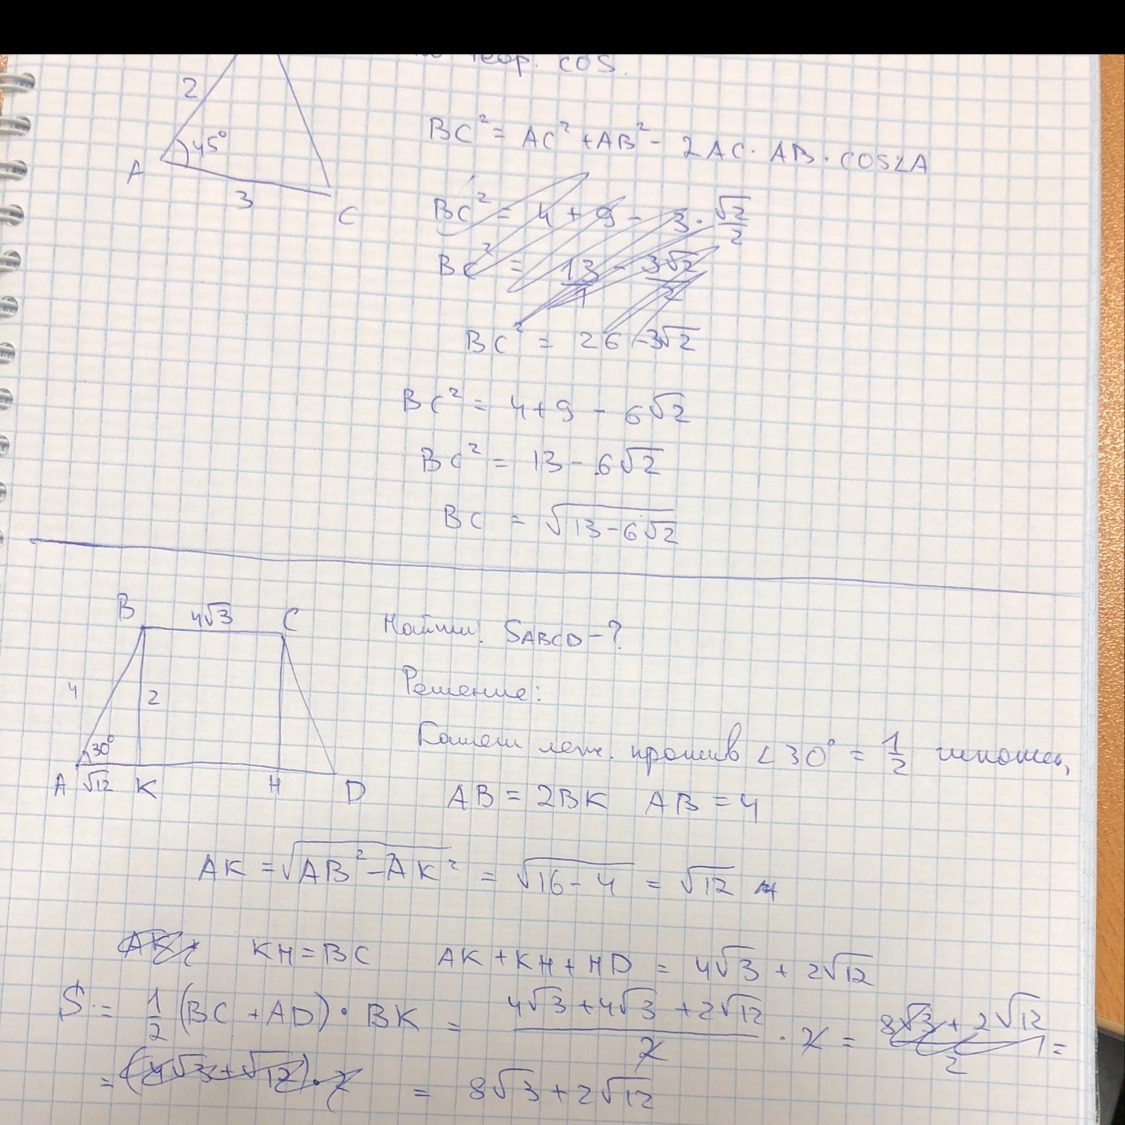 теор. cos.
2
45°
A
3
C
BC² = AC² + AB² - 2AC · AB · cos∠A
BC² = 4 + 9 - 3 · √2/2
BC² = 13/1 - 3√2/2
BC² = 26 - 3√2
BC² = 4 + 9 - 6√2
BC² = 13 - 6√2
BC = √(13 - 6√2)
B 4√3 C
4 2
30°
A √12 K H D
Найти: SABCD - ?
Решение:
Катет леж. против ∠30° = 1/2
AB = 2BK AB = 4
AK = √(AB² - AK²) = √(16 - 4) = √12
KH = BC AK + KH + HD = 4√3 + 2√12
S = 1/2 (BC + AD) · BK = (4√3 + 4√3 + 2√12)/2 · 2 = (8√3 + 2√12)/2 =
= (4√3 + √12) · 2 = 8√3 + 2√12